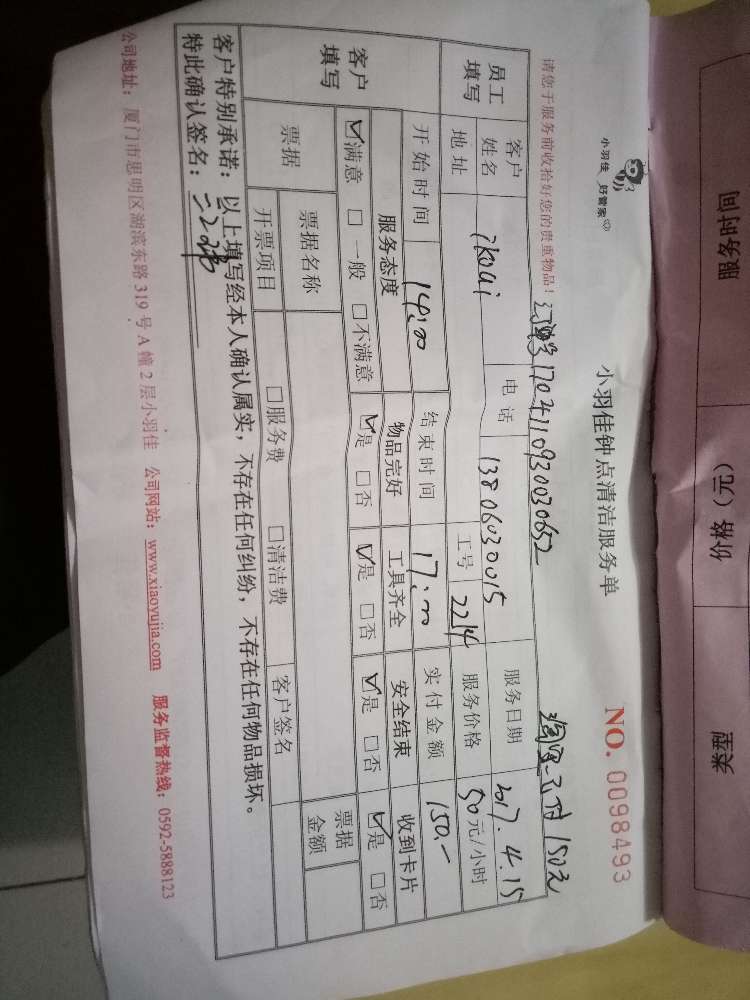 小羽佳 好管家
小羽佳钟点清洁服务单
NO. 0098493
请您于服务前收拾好您的贵重物品！
17041109300030652
已付150元
员工填写
客户姓名 ikuai 电话 13806030015 服务日期 2017.4.15
地址 工号 2214 服务价格 50元/小时
开始时间 14:00 结束时间 17:00 实付金额 150.-
客户填写
服务态度 物品完好 工具齐全 安全结束 收到卡片
☑满意 □一般 □不满意 ☑是 □否 ☑是 □否 ☑是 □否 ☑是 □否
票据 票据名称 客户签名 票据金额
开票项目 □服务费 □清洁费
客户特别承诺：以上填写经本人确认属实，不存在任何纠纷，不存在任何物品损坏。
特此确认签名：
公司地址：厦门市思明区湖滨东路319号A幢2层小羽佳 公司网站：www.xiaoyujia.com 服务监督热线：0592-5888123
服务时间
价格（元）
类型